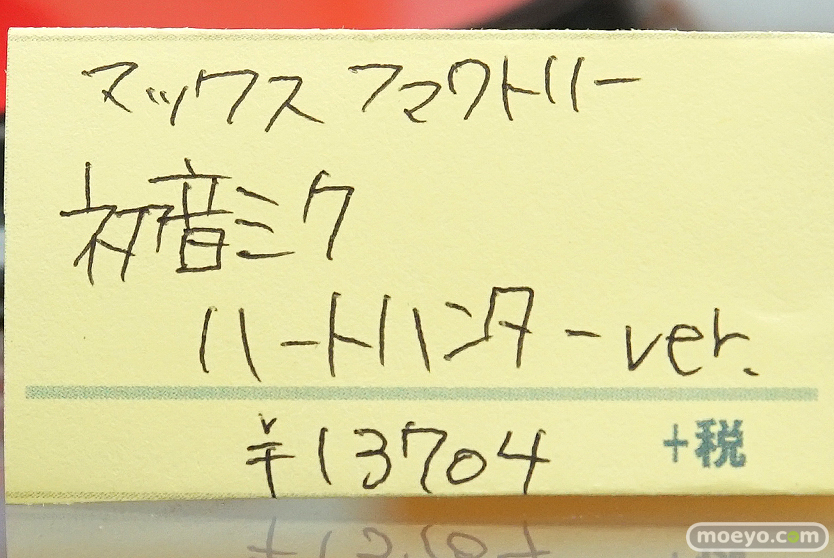 マックスファクトリー
初音ミク
ハートハンターver.
¥13704 +税
moeyo.com